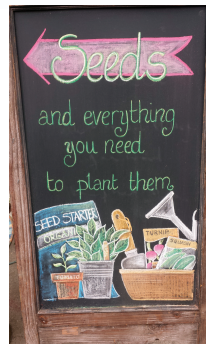 Seeds
and everything
you need
to plant them
SEED STARTER
ORGANIC
TURNIP